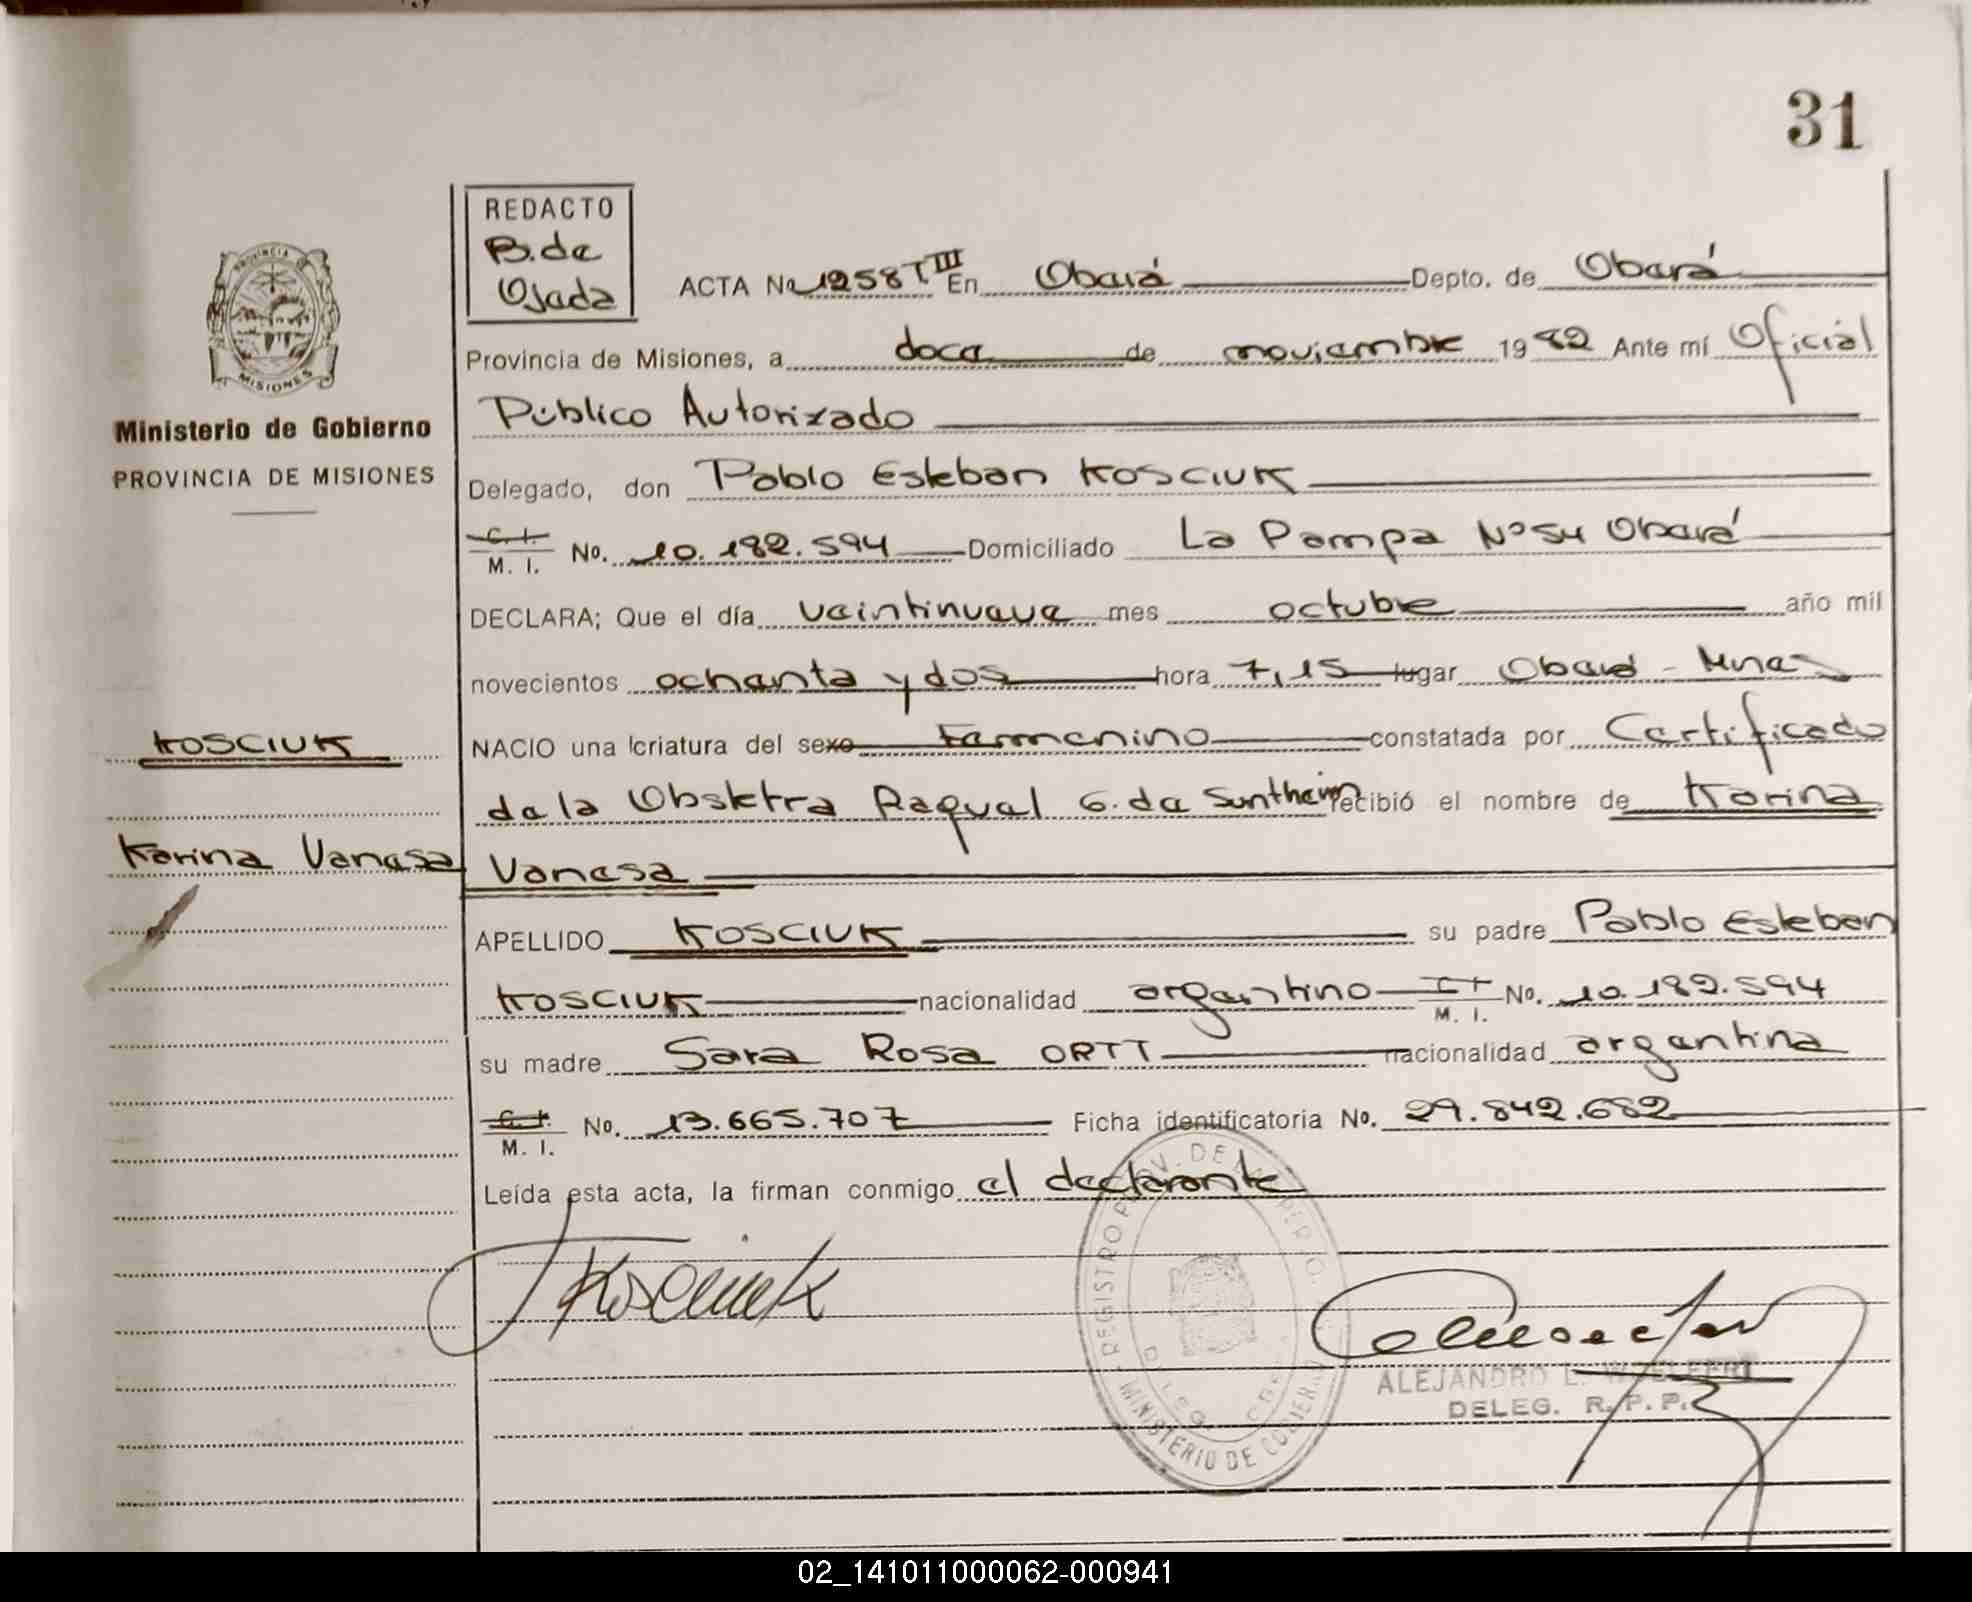 31
REDACTO
B. de
Ojeda
PROVINCIA DE
MISIONES
Ministerio de Gobierno
PROVINCIA DE MISIONES
ACTA No 1258 T III En Oberá Depto. de Oberá
Provincia de Misiones, a doce de noviembre 1982 Ante mí Oficial
Público Autorizado
Delegado, don Pablo Esteban KOSCIUK
C. I.
M. I. No. 10.182.594 Domiciliado La Pampa Nº 54 Oberá
DECLARA; Que el día veintinueve mes octubre año mil
novecientos ochenta y dos hora 7,15 lugar Oberá - Mnes
KOSCIUK
NACIO una criatura del sexo femenino constatada por Certificado
de la Obstetra Raquel G. de Sunthein recibió el nombre de Karina
Karina Vanesa
Vanesa
APELLIDO KOSCIUK su padre Pablo Esteban
KOSCIUK nacionalidad argentino C. I. M. I. No. 10.182.594
su madre Sara Rosa ORTT nacionalidad argentina
C. I.
M. I. No. 13.665.707 Ficha identificatoria No. 29.842.682
Leída esta acta, la firman conmigo el declarante
Kosciuk
REGISTRO PROV. DE LAS PER
MINISTERIO DE GOBIERNO
ALEJANDRO L.
DELEG. R. P. P.
02_141011000062-000941